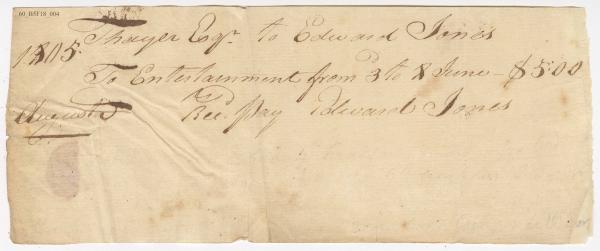 60 B5F18 004
Thayer Esqr. to Edward Jones
1805.
To Entertainment from 3 to 8 June – $5.00
August 5 Recd. pay Edward Jones